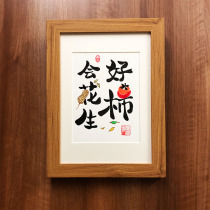 好柿
会花生